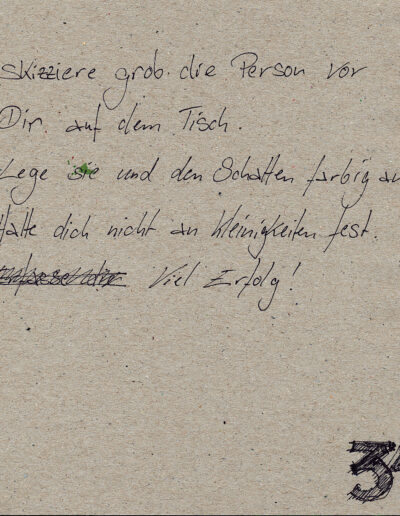 Skizziere grob die Person vor
Dir auf dem Tisch.
Lege sie und den Schatten farbig an
Halte dich nicht an Kleinigkeiten fest.
Viel Erfolg!
3